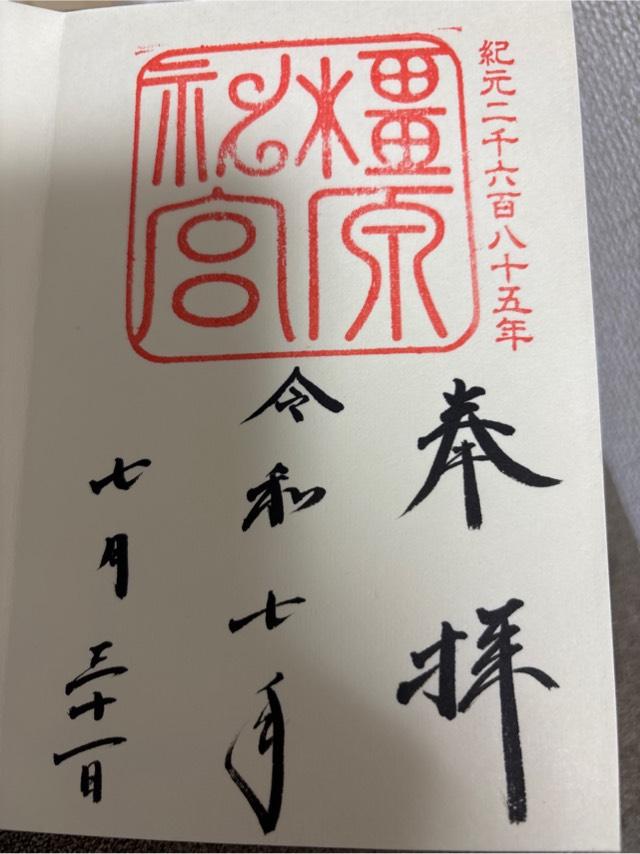 紀元二千六百八十五年
橿原
神宮
奉拝
令和七年
七月三十一日